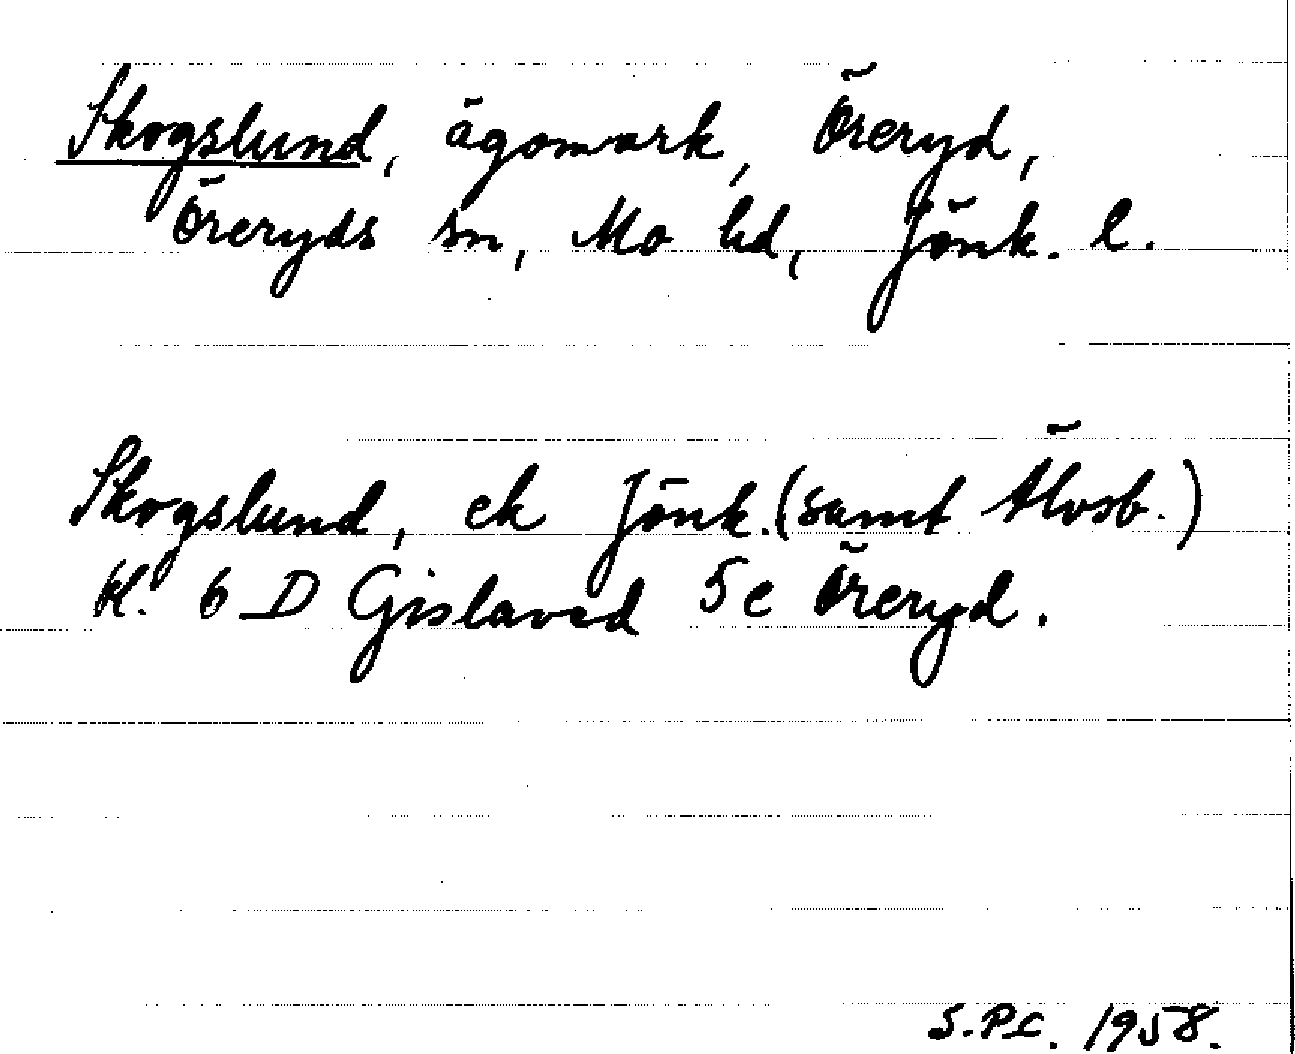 Skogslund, ägomark, Öreryd,
Öreryds sn, Mo hd, Jönk. l.
Skogslund, ek Jönk. (samt Älvsb.)
bl. 6 D Gislaved 5 e Öreryd.
S.P.L. 1958.